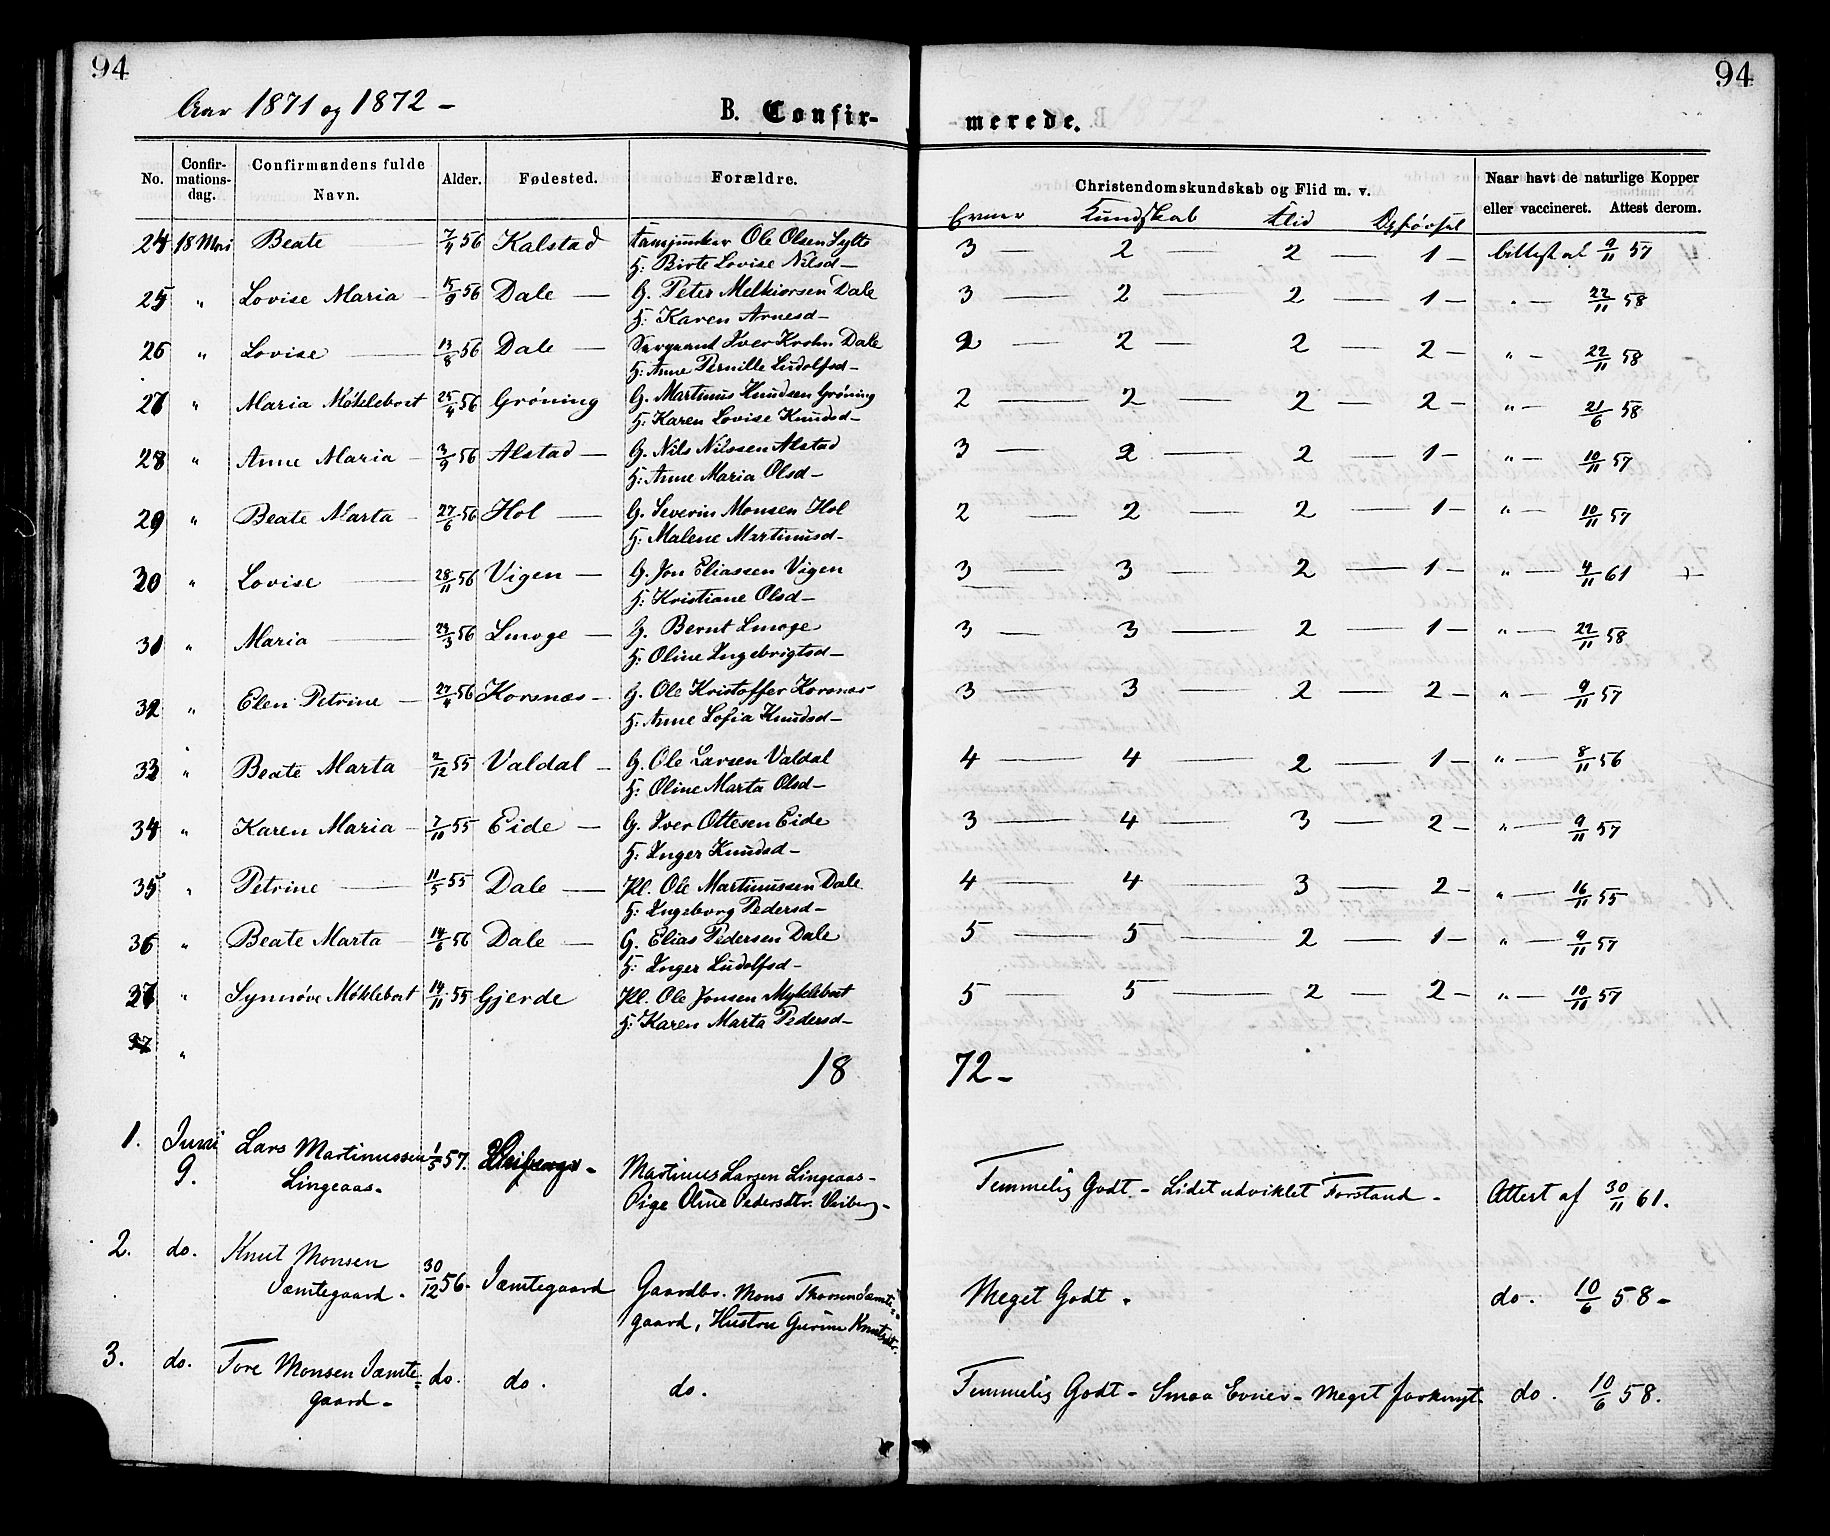 94
94
Aar 1871 og 1872 -
B. Confir-
merede.
No.
Confir-
mations-
dag.
Confirmandens fulde
Navn.
Alder.
Fødested.
Forældre.
Christendomskundskab og Flid m. v.
Evner Kundskab Flid Opførsel
Naar havt de naturlige Kopper
eller vaccineret. Attest derom.
24 18 Mai Beate 7/4 56 Kalstad Ole Olsen Sylte 3 — 2 — 2 — 1 — 9/11 57
H: Birte Lovise Nilsd —
25 " Lovise Maria — 15/9 56 Dale — G. Peter Melkiorsen Dale 3 — 2 — 2 — 1 — " — 22/11 58
H: Karen Arnesd —
26 " Lovise — 13/8 56 Dale — Sergeant Iver Krohn Dale 2 — 2 — 2 — 2 — " — 22/11 58
H: Anne Pernille Ludolfsd —
27 " Maria Møklebost 25/4 56 Grøning G. Martinus Knudsen Grøning 2 — 2 — 2 — 2 — " — 21/6 58
H: Karen Lovise Knudsd —
28 " Anne Maria — 3/9 56 Alstad — G. Nils Nilssen Alstad 3 — 2 — 2 — 1 — " — 10/11 57
H: Anne Maria Olsd —
29 " Beate Marta — 27/6 56 Hol — G. Severin Monsen Hol 2 — 2 — 2 — 1 — " — 10/11 57
H: Malene Martinusd —
30 " Lovise — 28/11 56 Vigen — G. Jon Eliassen Vigen 3 — 3 — 2 — 1 — " — 4/11 61
H: Kristiane Olsd —
31 " Maria — 23/3 56 Smoge — G. Bernt Smoge 3 — 3 — 2 — 1 — " — 22/11 58
H: Oline Ingebrigtsd —
32 " Elen Petrine — 27/4 56 Korsnæs — G. Ole Kristoffer Korsnæs 3 — 3 — 2 — 2 — " — 9/11 57
H: Anne Sofia Knudsd —
33 " Beate Marta 2/12 55 Valdal — G. Ole Larsen Valdal 4 — 4 — 2 — 1 — " — 8/11 56
H: Oline Marta Olsd —
34 " Karen Maria — 7/10 55 Eide — G. Iver Ottesen Eide 3 — 4 — 3 — 2 — " — 9/11 57
H: Inger Knudsd —
35 " Petrine — 11/5 55 Dale — Pl. Ole Martinussen Dale 4 — 4 — 3 — 2 — " — 16/11 55
H: Ingeborg Pedersd —
36 " Beate Marta — 14/6 56 Dale — G. Elias Pedersen Dale 5 — 5 — 2 — 1 — " — 9/11 57
H: Inger Ludolfsd —
37 " Synnøve Møklebost 14/11 55 Gjerde Pl. Ole Jonsen Myklebost 5 — 5 — 2 — 2 — " — 10/11 57
H: Karen Marta Pedersd —
37 "
18 72 -
1. Juni 9. Lars Martinussen 1/5 57. Martinus Larsen Lingeaas - Temmelig Godt - Lidet udviklet Forstand - Attest af 30/11 61.
Lingeaas. Pige Oline Pedersdtr. Veiberg -
2. do. Knut Monsen 30/12 56. Jæmtegaard Gaardbr. Mons Thoresen Jæmte= Meget Godt. do. 10/6 58 -
Jæmtegaard. gaard, Hustru Gurine Knutsdtr.
3. do. Tore Monsen Jæmte= do. do. do. Temmelig Godt - Smaa Evner - Meget forknyt. do. 10/6 58.
gaard -